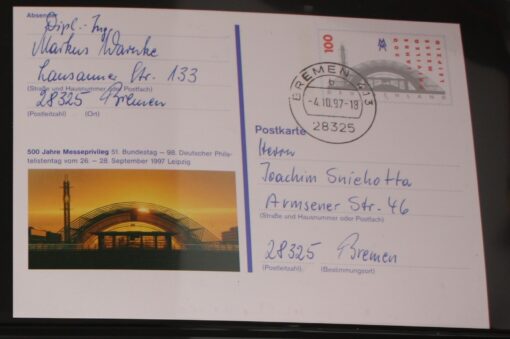 Absender
Dipl.-Ing.
Markus Warnke
Lausanner Str. 133
(Straße und Hausnummer oder Postfach)
28325 Bremen
(Postleitzahl) (Ort)
500 Jahre Messeprivileg 51. Bundestag – 98. Deutscher Phila-
telistentag vom 26. – 28. September 1997 Leipzig
100
500
JAHRE
MESSE
LEIPZIG
BREMEN 413
-4.10.97-18
28325
Postkarte
Herrn
Joachim Sniehotta
Armsener Str. 46
(Straße und Hausnummer oder Postfach)
28325 Bremen
(Postleitzahl) (Bestimmungsort)